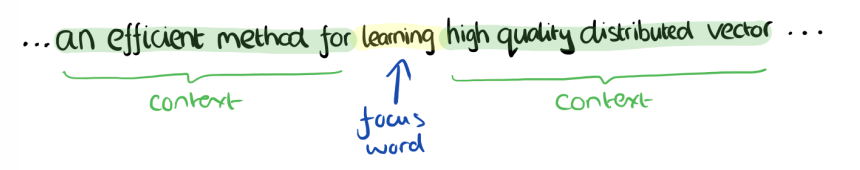 ...an efficient method for learning high quality distributed vector ...
context
context
focus
word